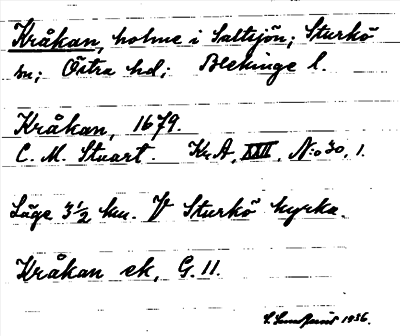 Kråkan, holme i Saltsjön; Sturkö
sn; Östra hd; Blekinge l.
Kråkan, 1679.
C. M. Stuart. KrA, XXII, N:o 30, 1.
Läge 3½ km. V Sturkö kyrka.
Kråkan ek, G. 11.
1936.